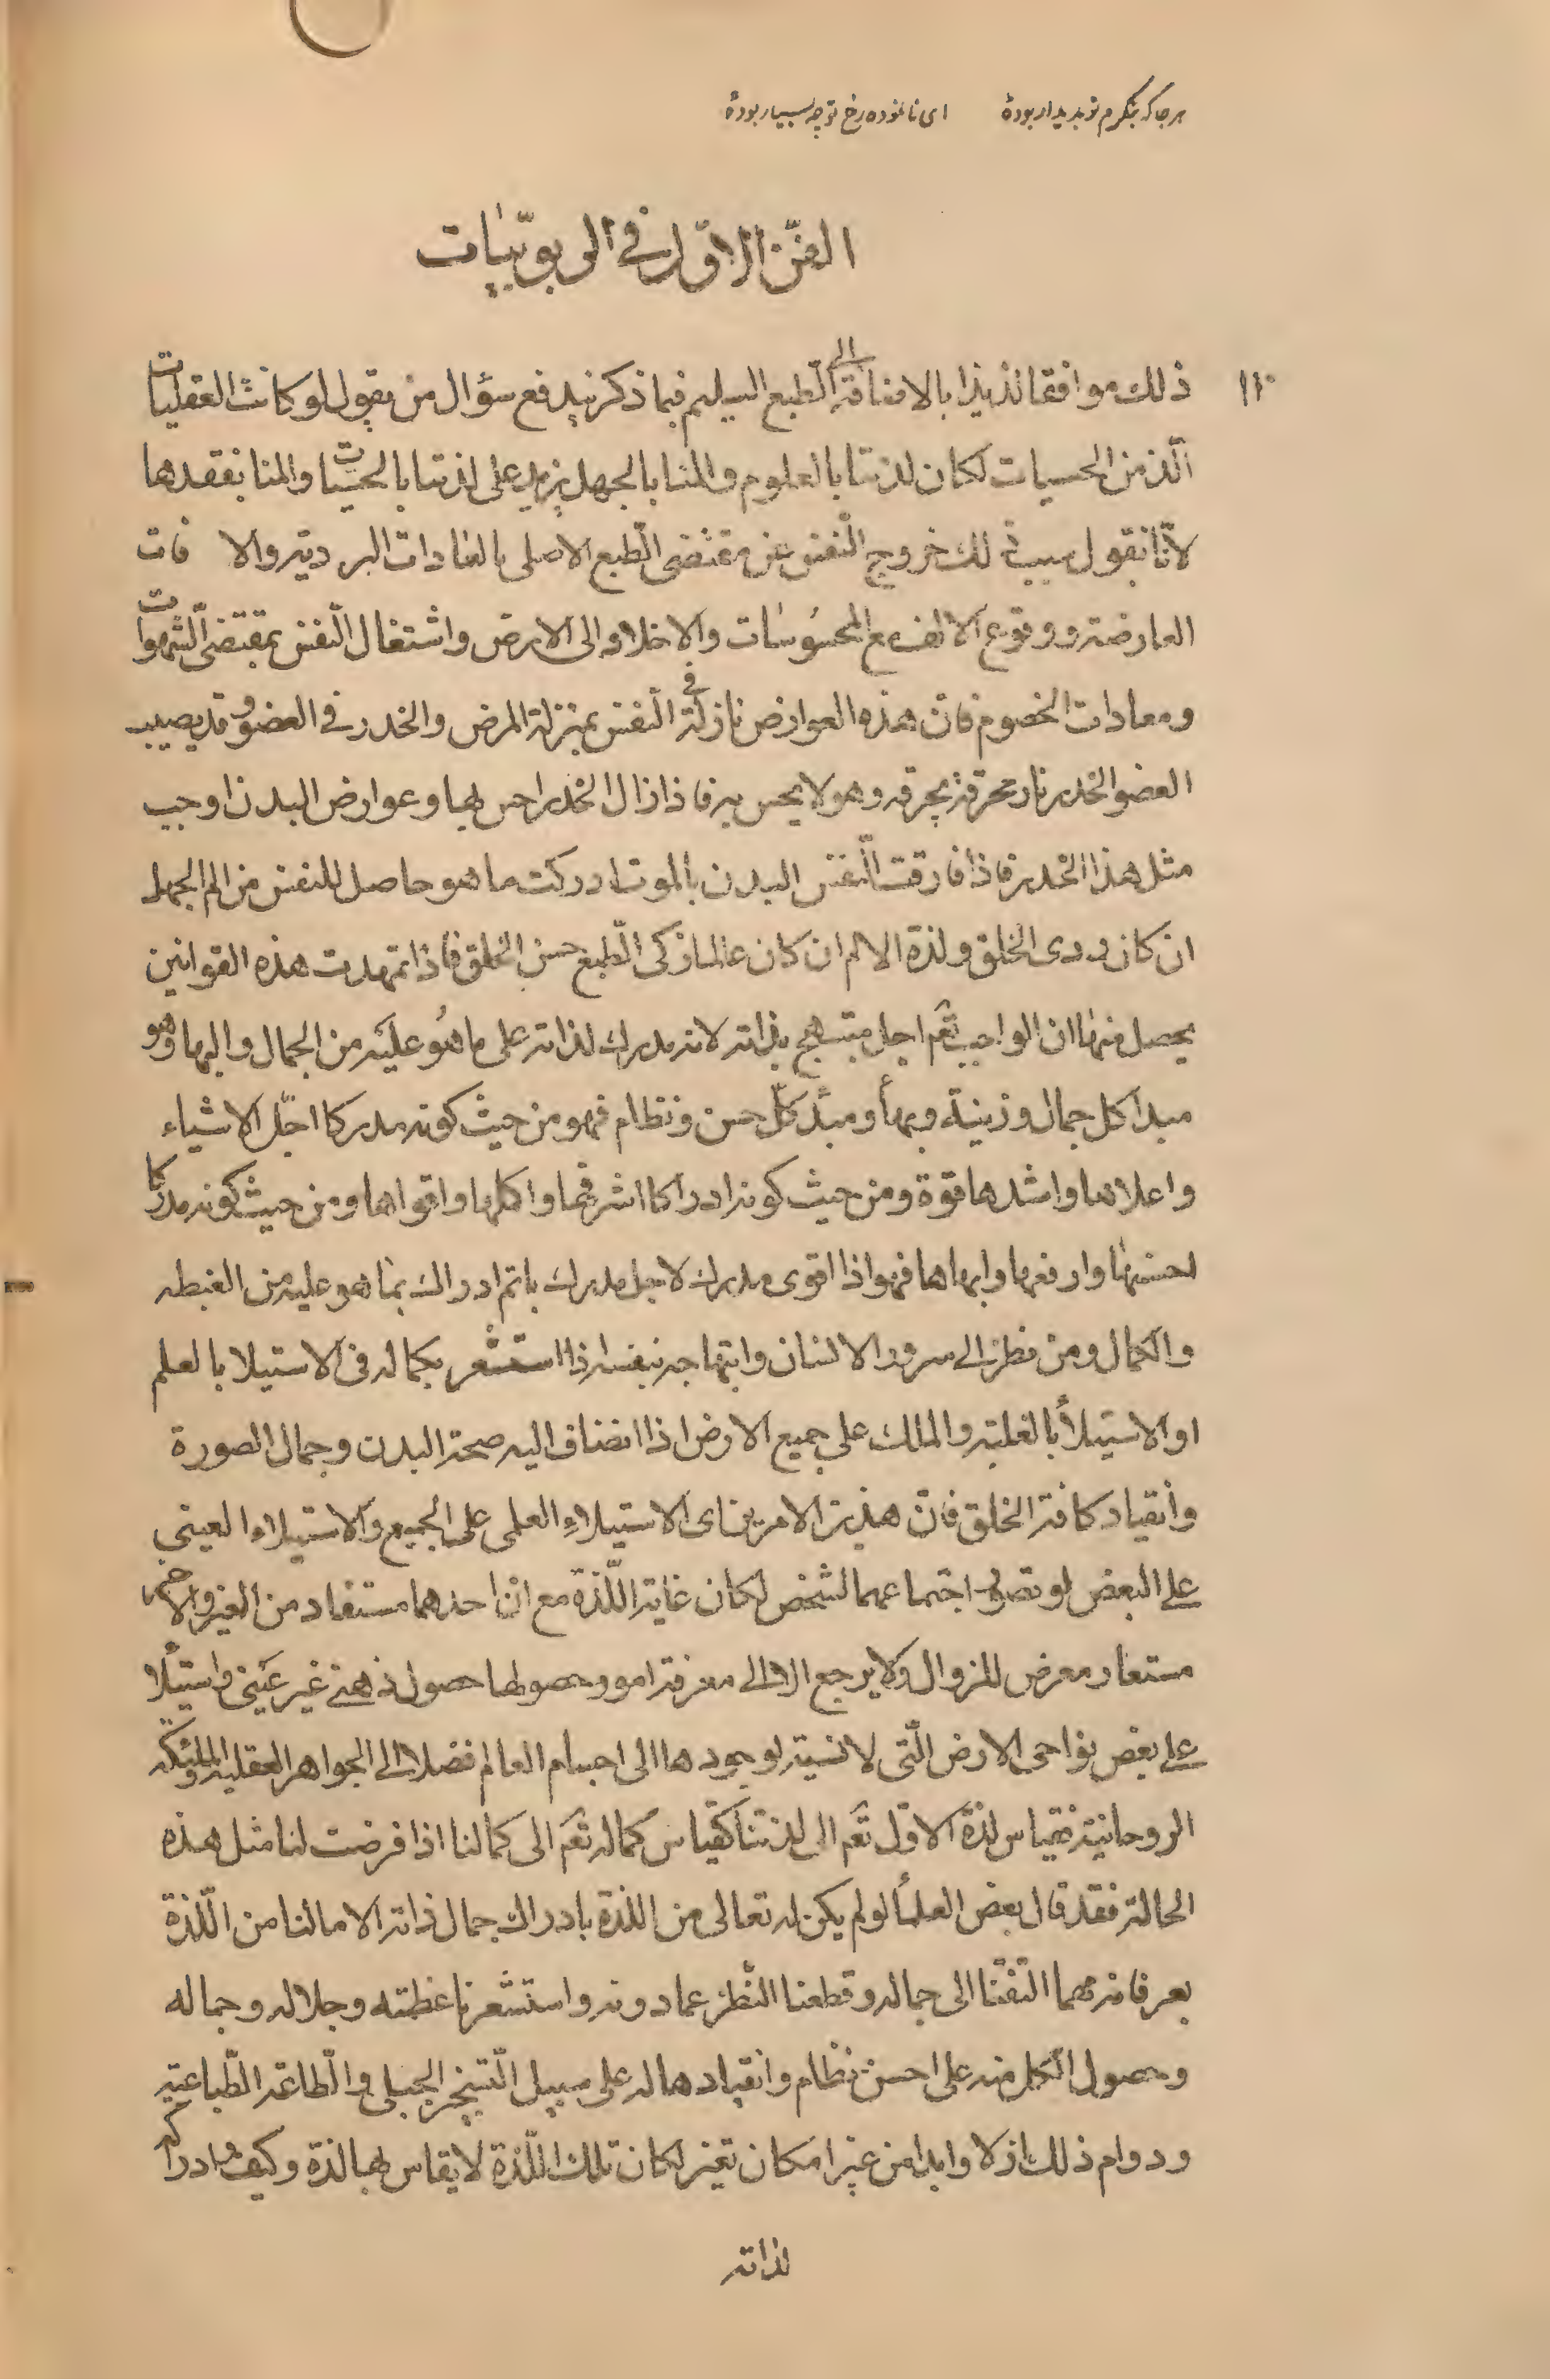 هر جا که بنگرم تو پدیدار بودهٔ ای نانموده رخ تو چه بسیار بودهٔ
الفنّ الاوّل فی الربوبیّات
۱۱۰
ذلك موافقا لذیذا بالاضافة الی الطبع السلیم فبما ذکر یندفع سؤال من یقول لو کانت العقلیات
الّذ من الحسیات لکان لذتنا بالعلوم والمنا بالجهل یزید علی لذتنا بالحسیات والمنا بفقدها
لانّا نقول سبب ذلك خروج النّفس عن مقتضی الطبع الاصلی بالعادات الردیة والافات
العارضة ووقوع الالف مع المحسوسات والاخلاد الی الارض واشتغال النّفس بمقتضی الشّهوات
ومعادات الخصوم فان هذه العوارض نازلة فی النّفس بمنزلة المرض والخدر فی العضو وقد یصیب
العضو الخدر نار محرقة یحرقه وهو لا یحس به فاذا زال الخدر احس بها وعوارض البدن اوجب
مثل هذا الخدر فاذا فارقت النّفس البدن بالموت ادرکت ما هو حاصل للنفس من الم الجهل
ان کان ردی الخلق ولذة الالم ان کان عالما زکی الطّبع حسن الخلق فاذا تمهدت هذه القوانین
یحصل منها ان الواجب تعم اجل مبتهج بذاته لانه مدرك لذاته علی ما هو علیه من الجمال والبها وهو
مبدا کل جمال وزینة وبهأ ومبدٔ کلّ حسن ونظام فهو من حیث کونه مدرکا اجلّ الاشیاء
واعلاها واشدها قوة ومن حیث کونه ادراکا اشرفها واکملها واقواها ومن حیث کونه مدرکا
احسنها وارفعها وابهاها فهو اذا اقوی مدرك لاجل مدرك باتم ادراك بما هو علیه من الغبطه
والکمال ومن نظر الی سرور الانسان وابتهاجه بنفسه اذا استشعر بکماله فی الاستیلا بالعلم
او الاستیلأ بالغلبة والملك علی جمیع الارض اذا انضاف الیه صحة البدن وجمال الصورة
وانقیاد کافة الخلق فانّ هذین الامرین ای الاستیلاءِ العلمی علی الجمیع والاستیلاء العینی
علی البعض لو تصور اجتماعهما لشخص لکان غایة اللّذة مع انّ احدهما مستفاد من الغیر والاخر
مستعار معرض للزوال ولا یرجع الا الی معرفة امور حصولها حصول ذهنی غیر عینی واستیلأ
علی بعض نواحی الارض الّتی لا نسبة لوجودها الی اجسام العالم فضلا الی الجواهر العقلیة والملئکه
الروحانیة فقیاس لذة الاوّل تعم الی لذتنا کقیاس کماله تعم الی کمالنا اذا فرضت لنا مثل هذه
الحالة فقد قال بعض العلمأ لو لم یکن له تعالی من اللذة بادراك جمال ذاته الا ما لنا من اللّذة
بعرفانه مهما التفتنا الی جماله وقطعنا النّظر عما دونه واستشعرنا عظمته وجلاله وجماله
وحصول الکل منه علی احسن نظام وانقیادها له علی سبیل التسخیر الجبلی والطاعة الطّباعیة
ودوام ذلك ازلا وابدا من غیر امکان تغیر لکان تلك اللّذة لا یقاس بها لذة وکیف وادراکه
لذاته